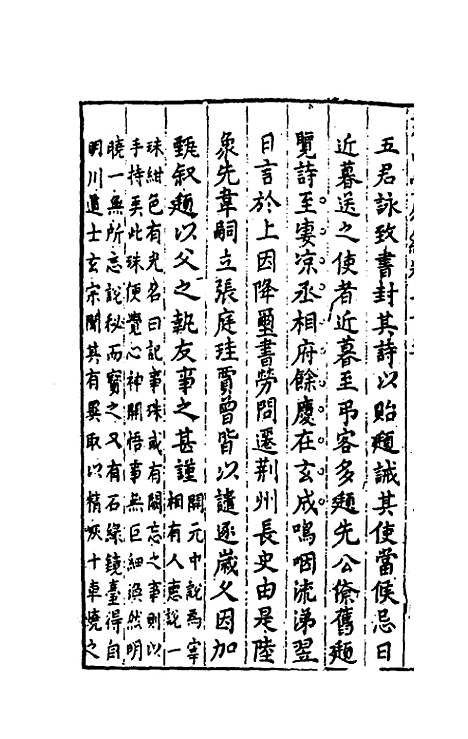 五君詠致書封其詩以貽頲誡其使當候忌日
近暮送之使者近暮至弔客多頲先公僚舊頲
覽詩至淒凉丞相府餘慶在玄成嗚咽流涕翌
日言於上因降璽書勞問遷荆州長史由是陸
象先韋嗣立張庭珪賈曾皆以譴逐歲久因加
甄叙頲以父之執友事之甚謹
開元中説爲宰
相有人惠説一
珠紺色有光名曰記事珠或有闕忘之事則以
手持弄此珠便覺心神開悟事無巨細渙然明
曉一無所忘説秘而寳之又有石緑鏡臺得自
明川道士玄宗聞其有異取以精炭十車燒之